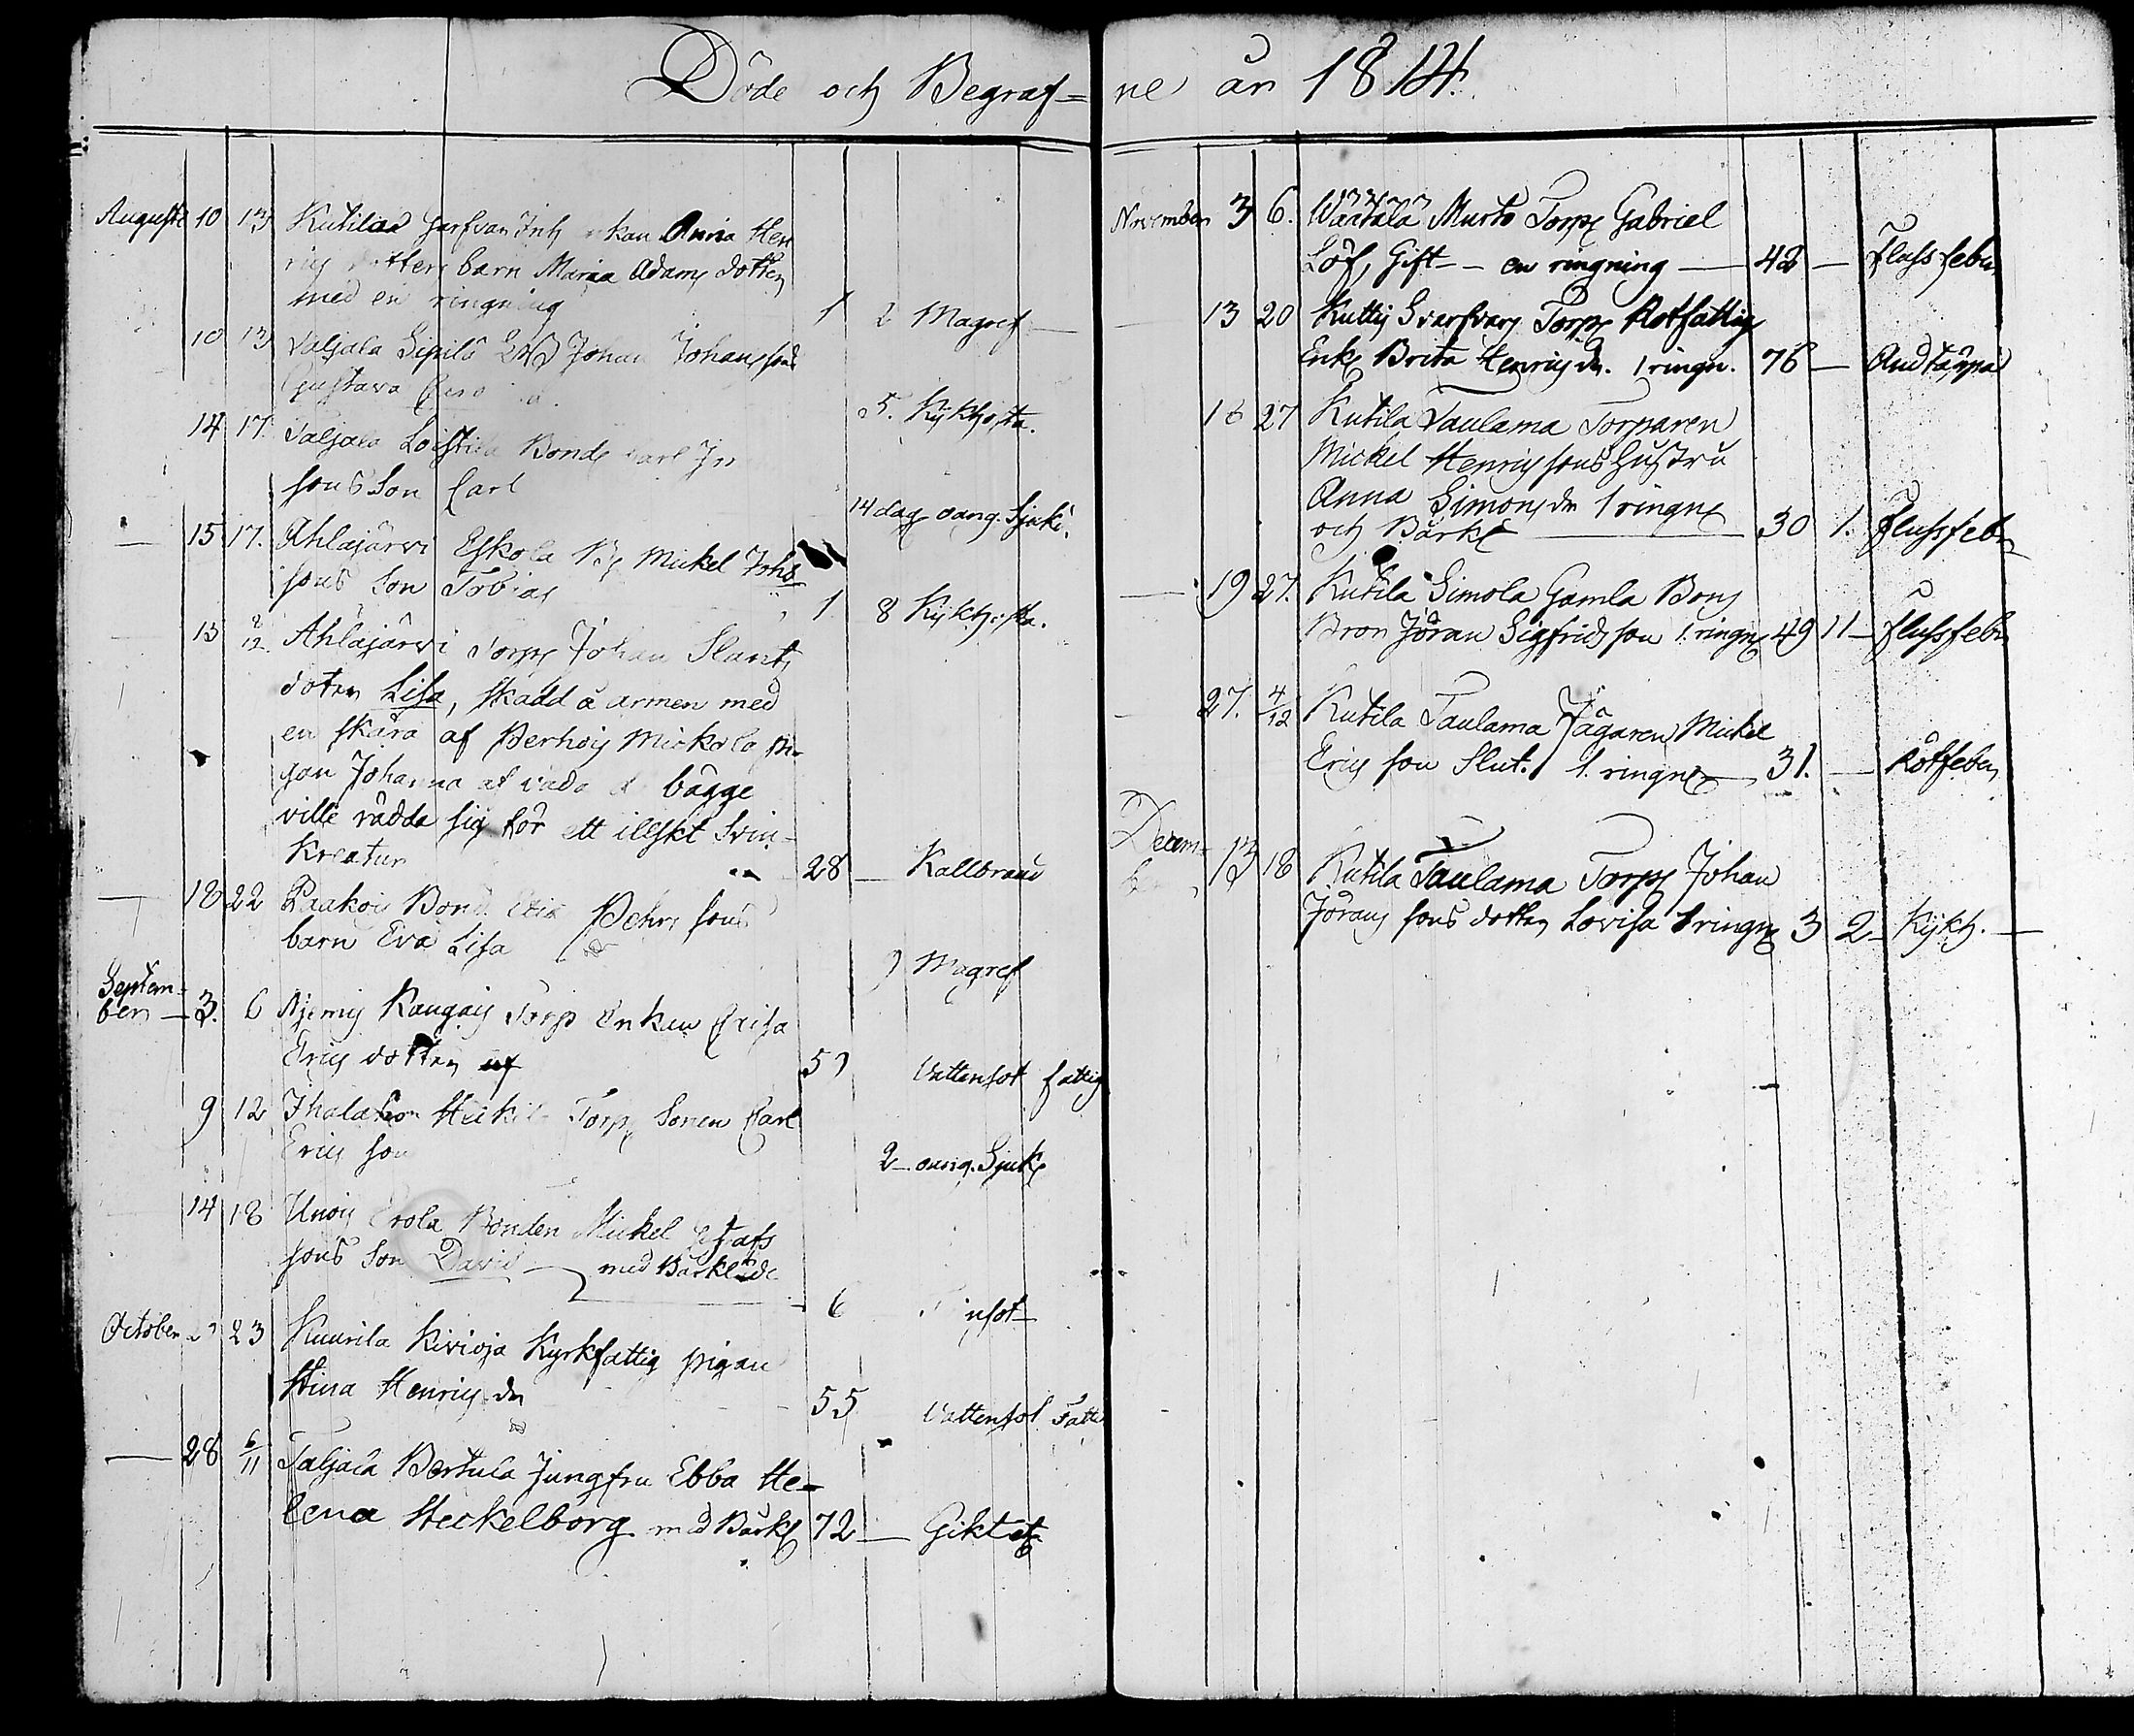 Döde och Begraf=ne år 1814.
Augusti 10 13 Kutilas Anna Hen
barn Maria Adams dotter
med en ringning 1 2 Magref
10 13 Taljala Sipilä Johan Johans sons
Gustava 5. Kykhosta.
14 17. Taljala Bonde Carl
sons Son Carl 14 dag. oang. Sjukd.
15 17. Ahlajärvi Eskola Mickel Johs
sons Son Tobias 1 8 Kykh:sta.
15 2/12 Ahlajärvi Torp Johan Slants
doter Lisa, skadd å armen med
en skära af Perhois Mickola pi-
gan Johanna af våda då bägge
ville rädda sig för ett illskt Svin-
Kreatur 28 Kallbrand
18 22 Laakois Bond Pehrs sons
barn Eva Lisa 9 Magref
Septem-
ber 3. 6 Kangais Torp Enkan
Erics dotter 59 Vattensot fattig
9 12 Torp Sonen Carl
Erics son 2 oang. Sjukd
14 18 Unois Erola Bonden Mickel Gustafs
sons Son David med Barkläde
6
October 23 Kuurila Kivioja Kyrkfattig pigan
Stina Henrics dr 55 Vattensot Fattig
28 6/11 Taljala Bertula Jungfru Ebba He-
lena Heckelborg med Bårkl 72 Gikt etc
November 3 6. Wäätälä Murto Torp Gabriel
Löf, Gift - en ringning 48 Flussfeber
13 20 Kuttis Svarfvars Torp Rotfattig
Enk Brita Henrics dr. 1 ringn. 76 Andtäppa
16 27 Kutila Taulama Torparen
Mickel Henrics sons hustru
Anna Simons dr 1 ringn
och Bårkl 30 1. Flussfeb
19 27. Kutila Simola Gamla Bons
Bron Jöran Sigfrids son 1. ringn 49 11 Flussfeber
27. 4/12 Kutila Taulama Jägaren Mickel
Erics son Slut. 1. ringn 31. Rötfeber
Decem-
ber 13 18 Kutila Taulama Torp Johan
Jörans sons dotter Lovisa 1 ringn 3 2 Kykh.